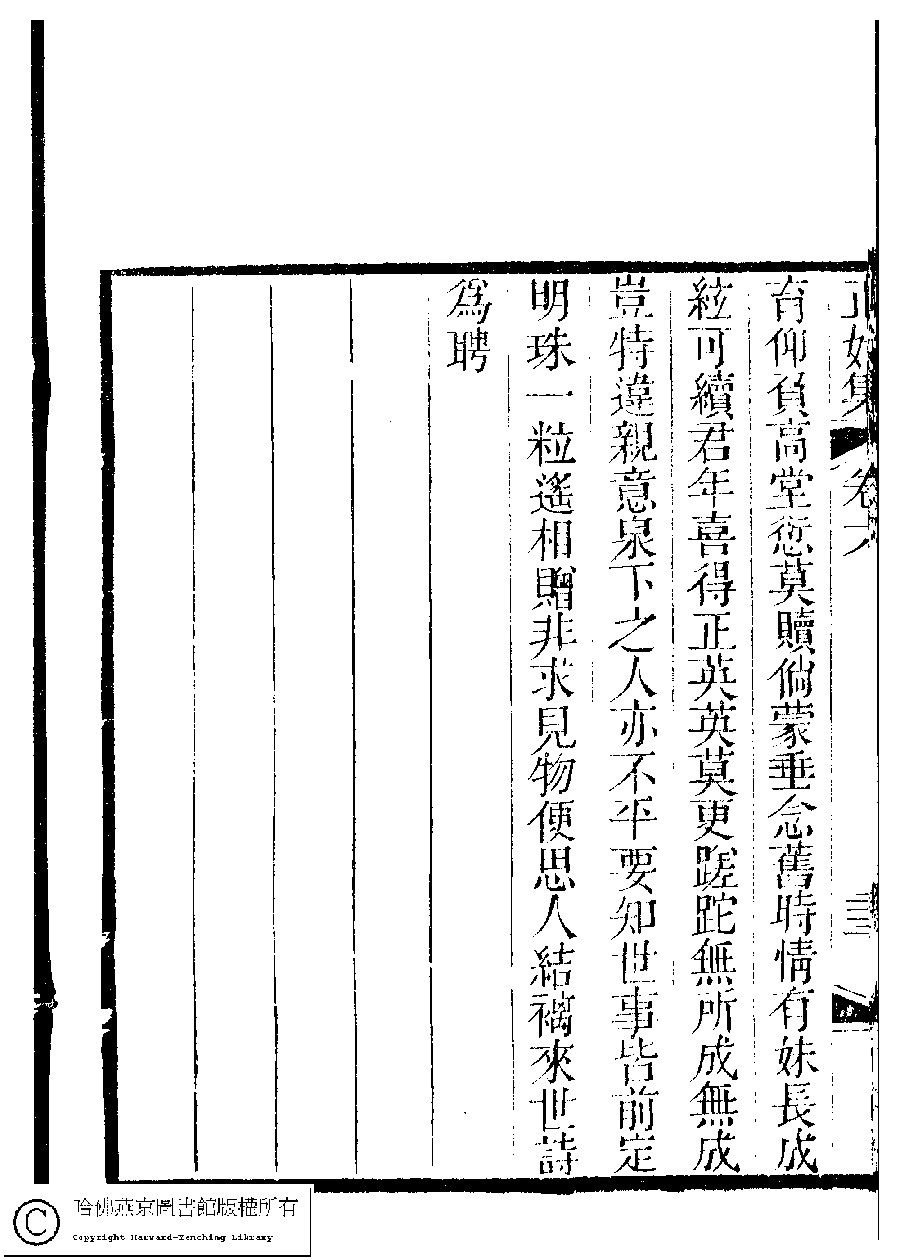 正始集 卷六 三
育仰負高堂愆莫贖倘蒙垂念舊時情有妹長成
絃可續君年喜得正英英莫更蹉跎無所成無成
豈特違親意泉下之人亦不平要知世事皆前定
明珠一粒遙相贈非求見物便思人結褵來世詩
為聘
哈佛燕京圖書館版權所有
Copyright Harvard-Yenching Library